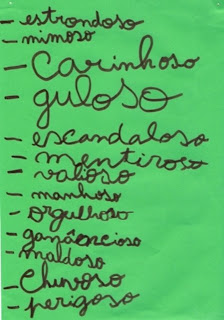 - estrondoso
- mimoso
- carinhoso
- guloso
- escandaloso
- mentiroso
- valioso
- manhoso
- orgulhoso
- ganâncioso
- maldoso
- chuvoso
- perigoso